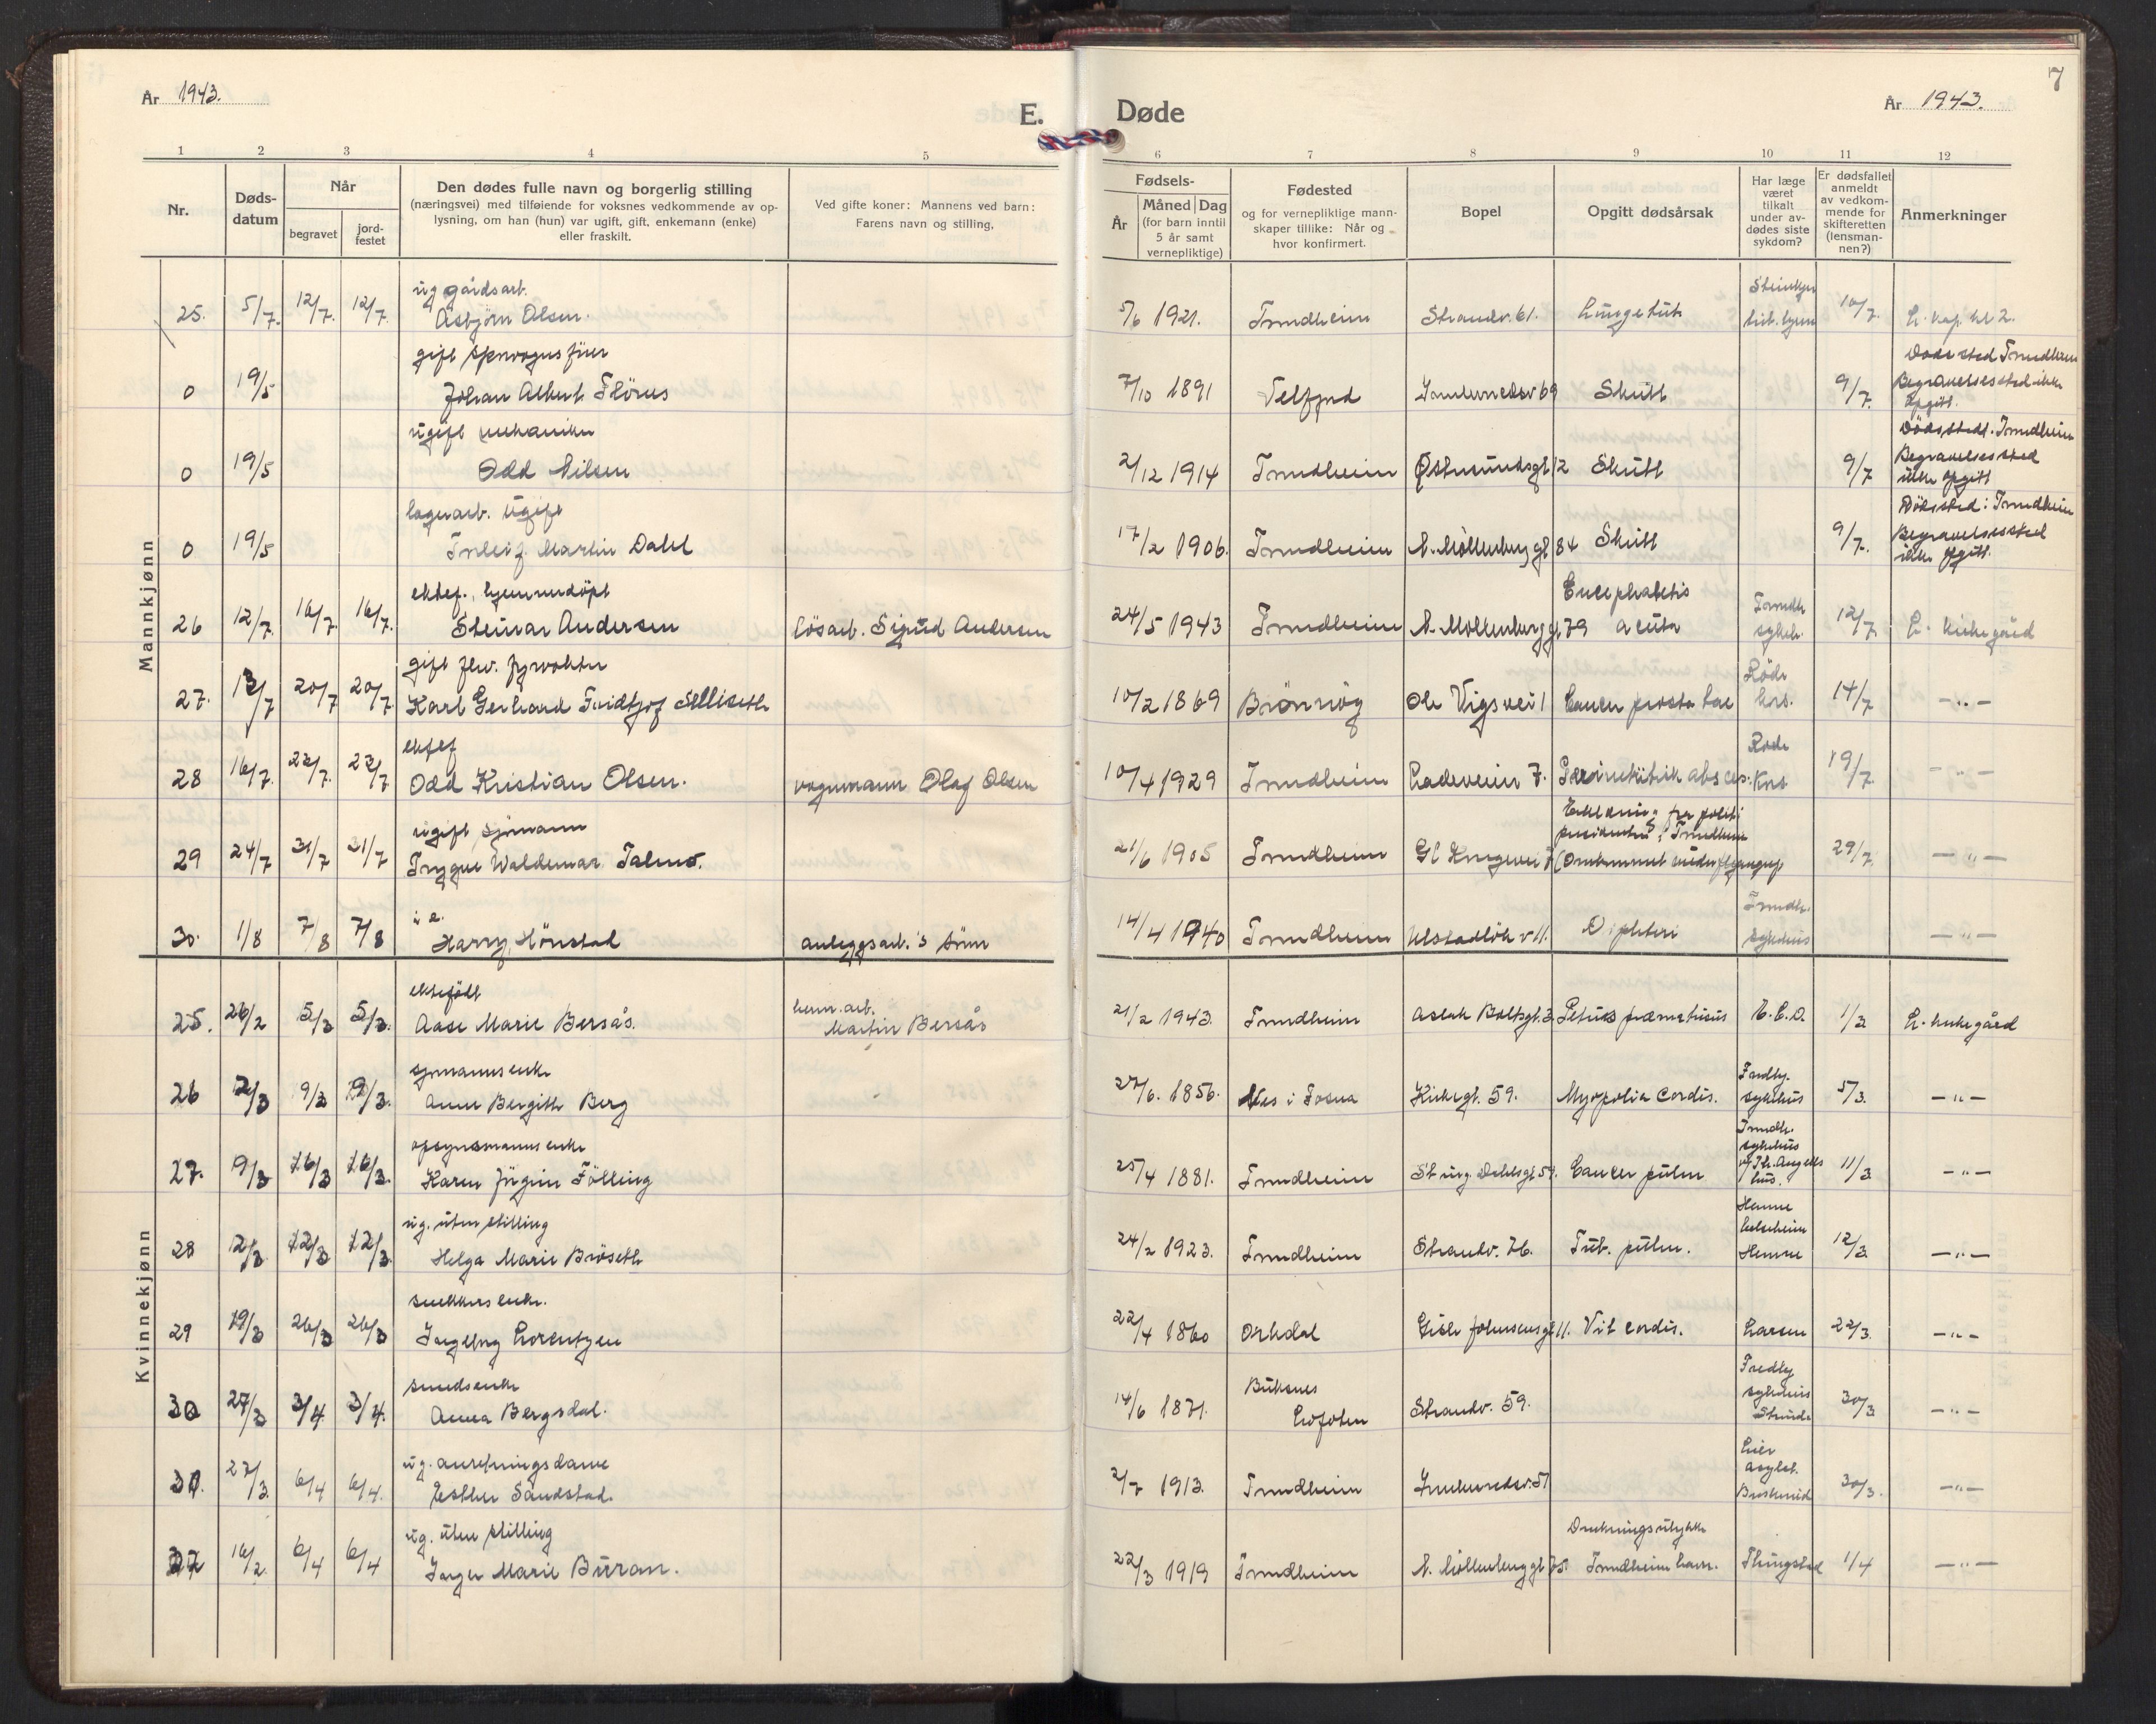 År 1943.
E.
Døde
År 1943.
7
1 2 3 4 5 6 7 8 9 10 11 12
Nr.
Døds-
datum
Når
begravet
jord-
festet
Den dødes fulle navn og borgerlig stilling
(næringsvei) med tilføiende for voksnes vedkommende av op-
lysning, om han (hun) var ugift, gift, enkemann (enke)
eller fraskilt.
Ved gifte koner: Mannens ved barn:
Farens navn og stilling.
Fødsels-
År
Måned Dag
(for barn inntil
5 år samt
vernepliktige)
Fødested
og for vernepliktige mann-
skaper tillike: Når og
hvor konfirmert.
Bopel
Opgitt dødsårsak
Har læge
været
tilkalt
under av-
dødes siste
sykdom?
Er dødsfallet
anmeldt
av vedkom-
mende for
skifteretten
(lensman-
nen?)
Anmerkninger
Mannkjønn
ug gårdsarb.
25. 5/7. 12/7. 12/7. Asbjørn Olsen. 5/6 1921. Trondheim Strandv. 61. Lungetub. 10/7. L. kap. kl 2.
gift
0 19/5 Johan Albert 7/10 1891 Velfjord Innherredsv 69 Skutt 9/7.
Dødssted Trondheim
Begravelsessted ikke
opgitt.
ugift mekaniker
0 19/5 Odd Nilsen 2/12 1914 Trondheim Østersundsgt 12 Skutt 9/7
Dødssted: Trondheim
Begravelsessted
ikke opgitt
lagerarb. ugift
0 19/5 Torleif Martin Dahl 17/2 1906. Trondheim N. Møllenberg gt 84 Skutt 9/7.
Dødssted: Trondheim
Begravelsessted
ikke opgitt.
ektef., hjemmedøpt
26 12/7. 16/7. 16/7. Steinar Andersen løsarb. Sigurd Andersen 24/5 1943 Trondheim N. Møllenberg gt 79 acuta Trondh. sykeh. 12/7 L. kirkegård
gift fhv. fyrvokter
27. 13/7 20/7 20/7. Karl Gerhard Fridtjof Selliseth 10/2 1869 Brønnøy Ole Vigsvei 1 Cancer prostatae Røde kors. 14/7 — „ —
ektef
28 16/7. 22/7. 22/7 Odd Kristian Olsen. vognmann Olaf Olsen 10/4 1929 Trondheim Ladeveien 7. Røde Kors 19/7. — „ —
ugift sjømann
29 24/7 31/7 31/7 Trygve Waldemar 21/6 1905 Trondheim Gl Kongevei Erklæring fra politi
presidenten i Trondheim
(Omkommet under 29/7. — „ —
u e.
30. 1/8 7/8 7/8 Harry Hønstad anleggsarb.'s sønn 14/4 1940 Trondheim v 11. Difteri Trondh. sykehus — „ —
Kvinnekjønn
ektefødt
25. 26/2 5/3 5/3. Aase Marie Bersås. Martin Bersås 21/2 1943. Trondheim Aslak Boltsgt. 3 E.C.D. 1/3 L. kirkegård
sjømanns enke
26 2/3 9/3 9/3. Anne Bergitte Berg 27/6. 1856. Nes i Fosna Kirkegt. 59. cordis. Fredly. sykehus 5/3. — „ —
opsynsmanns enke
27. 9/3 16/3 16/3. Karen Jørgine Følling 25/4 1881. Trondheim Cancer pulm Trondh. sykehus og Th. Angells hus. 11/3 — „ —
ug. uten stilling
28 2/3 12/3 12/3 Helga Marie Brøseth 24/2 1923. Trondheim Strandv. 76. Tub. pulm. Hemne helseheim Hemne 12/3. — „ —
snekkers enke.
29 19/3 26/3 26/3 Ingeborg Lorentzen 22/4 1860 Orkdal Gisle Johnsensgt 11. Vit cordis. Larsen 22/3. — „ —
smedsenke
30 27/3 3/4 3/4. Anna Bergsdal. 14/6 1871. Buksnes Lofoten Strandv. 59. Fredly sykehus Strinda 30/3 — „ —
ug. anretningsdame
31. 27/3. 6/4 6/4. Esther Sandstad. 2/7 1913. Trondheim Innherredsv. 51 Lier asylet. Buskerud 30/3. — „ —
ug. uten stilling
32 16/2. 6/4 6/4 Inger Marie Buran. 22/3 1919 Trondheim N. Møllenberg gt 75. Drukningsulykke Trondheim havn. Thingstad 1/4 — „ —